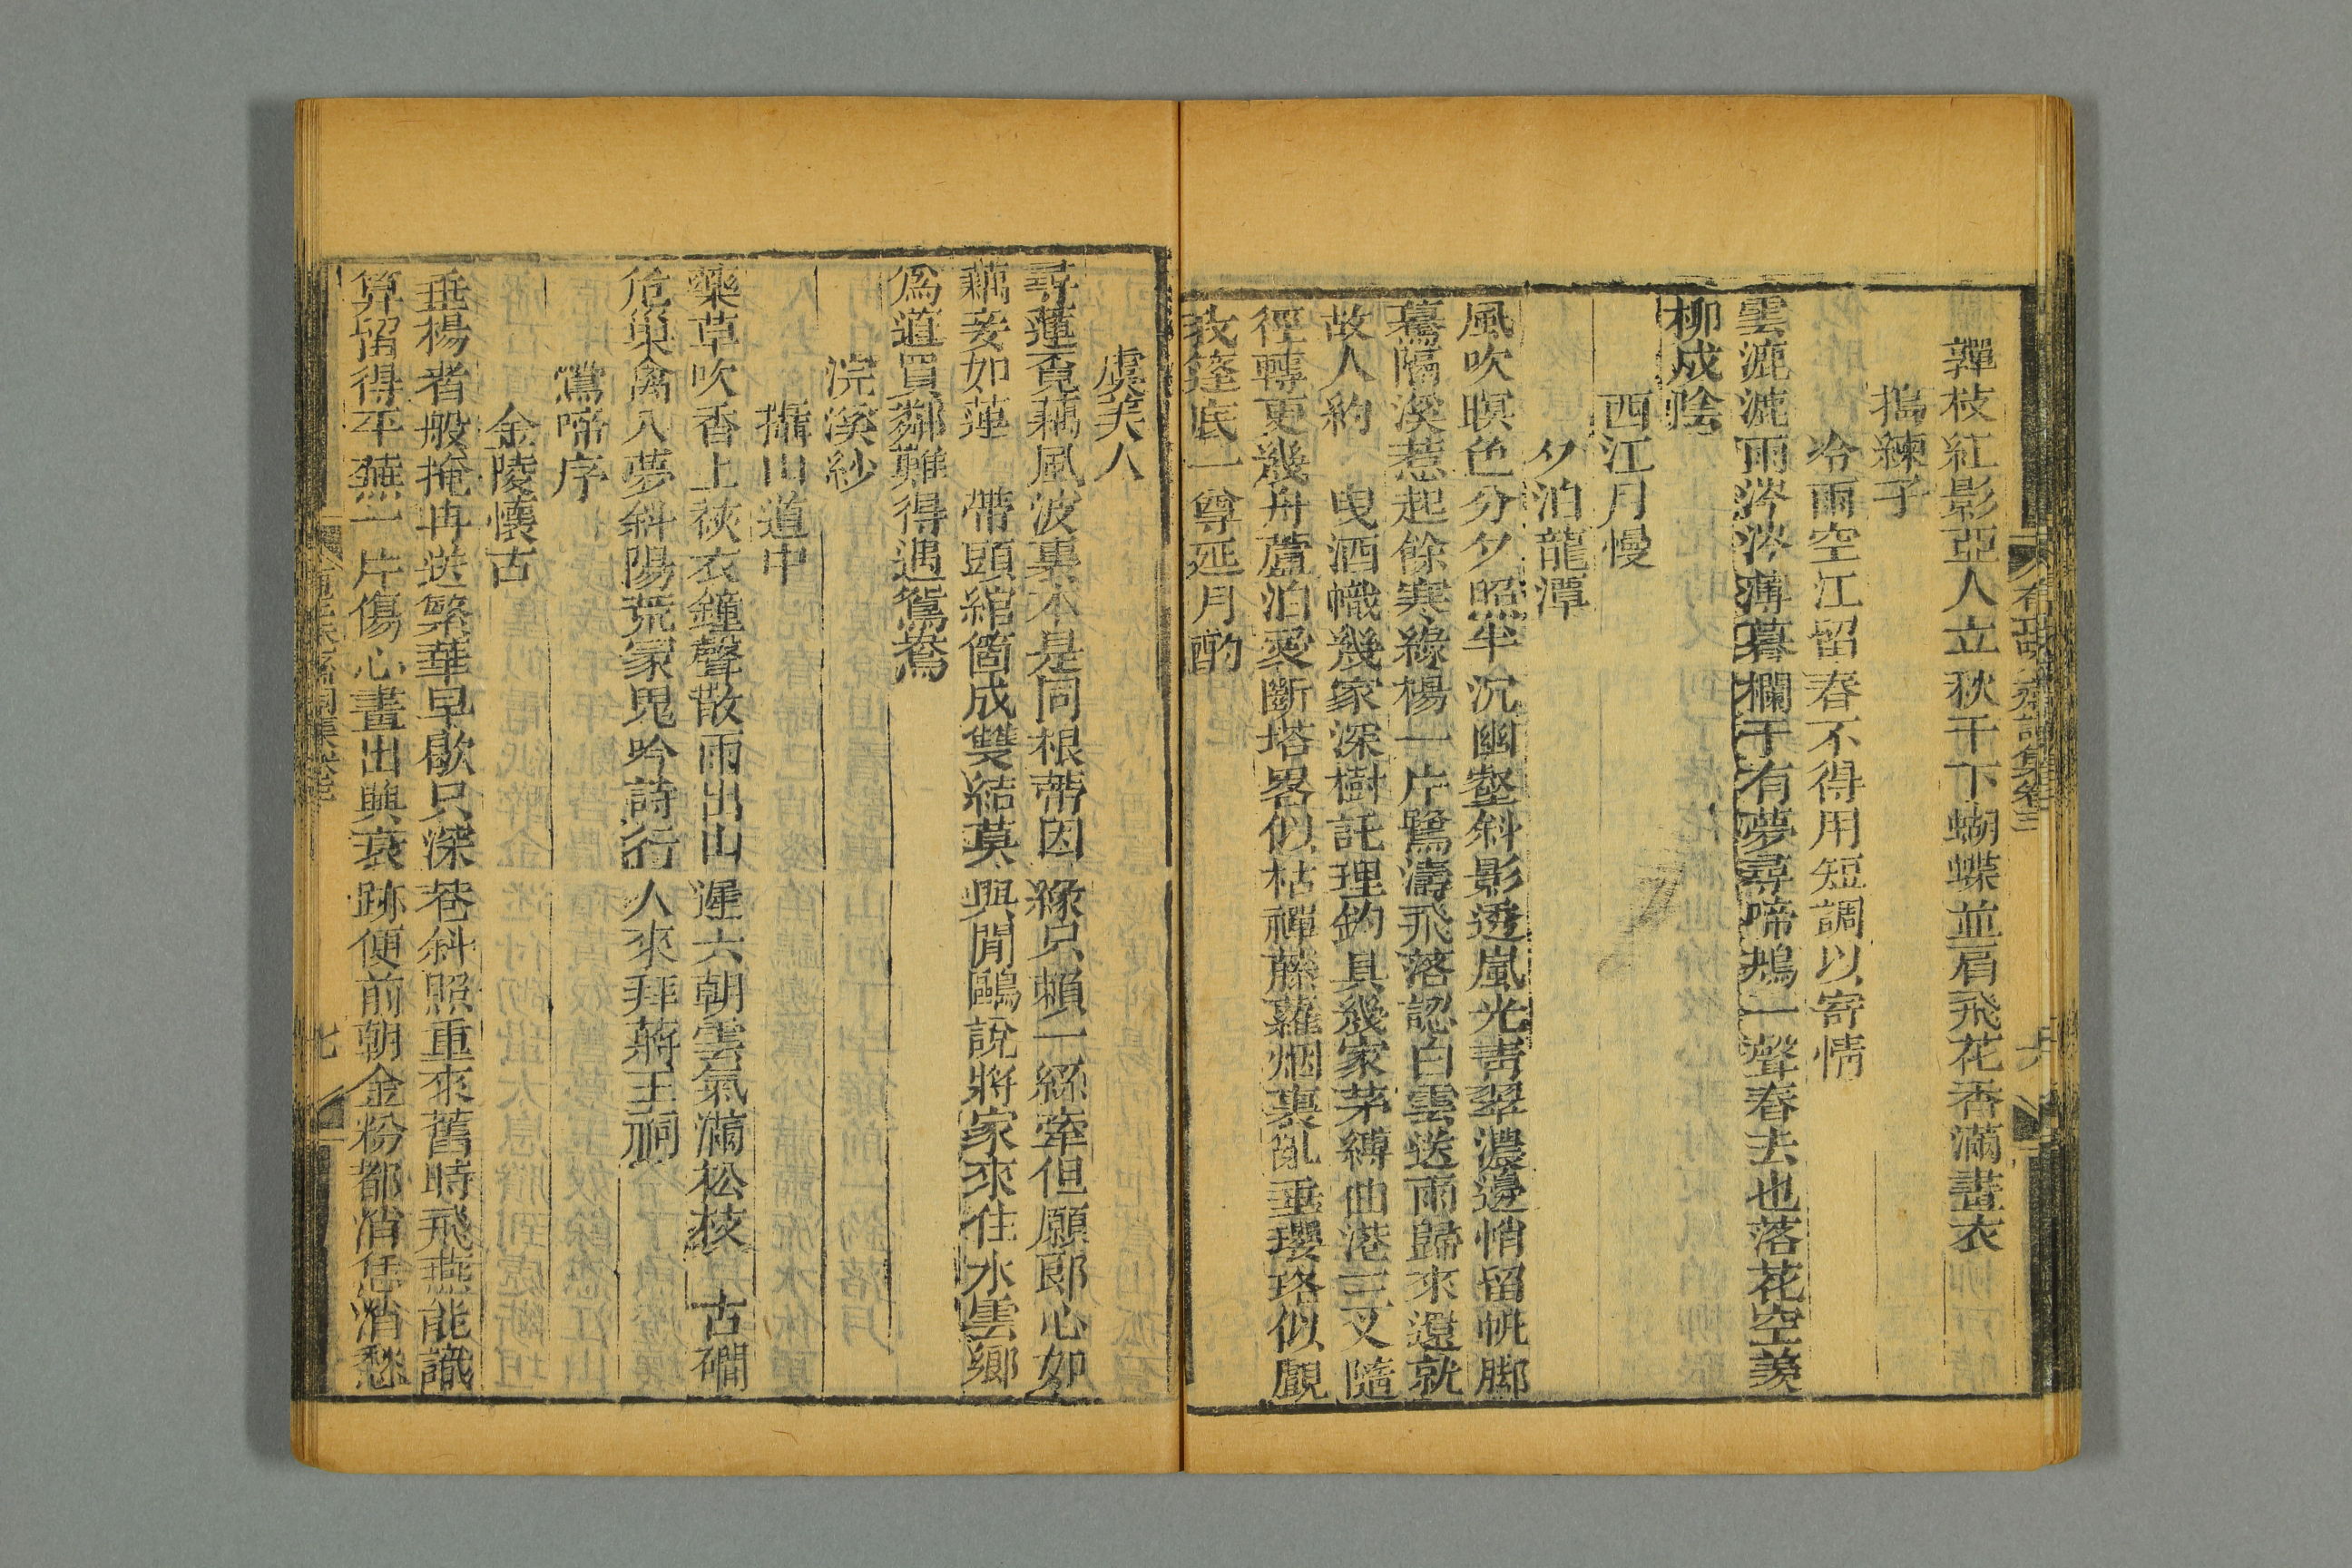 嚲枝紅影亞人立秋千下蝴蝶並肩飛花香滿畫衣
搗練子
冷雨空江留春不得用短調以寄情
雲漉漉雨涔涔薄暮欄干有夢尋啼鴂一聲春去也落花空羨
柳成陰
西江月慢
夕泊龍潭
風吹暝色分夕照半沉幽壑斜影透嵐光靑翠濃邊悄留帆脚
驀隔溪惹起餘寒綠楊一片鷺濤飛落認白雲送雨歸來還就
故人約 曳酒幟幾家深樹託理釣具幾家茅縛曲港三叉隨
徑轉更幾舟蘆泊愛斷塔畧似枯禪藤蘿烟裏亂垂瓔珞似覷
我篷底一尊延月酌
虞美人
尋蓮覓藕風波裏本是同根蒂因緣只賴一絲牽但願郎心如
藕妾如蓮 帶頭綰箇成雙結莫與閒鷗說將家來住水雲鄉
爲道買鄰難得遇鴛鴦
浣溪紗
攝山道中
藥草吹香上袂衣鐘聲散雨出山遲六朝雲氣滿松枝 古磵
危巢禽入夢斜陽荒冢鬼吟詩行人來拜蔣王祠
鶯啼序
金陵懷古
垂楊者般掩冉送繁華早歇只深巷斜照重來舊時飛燕能識
算留得平蕪一片傷心畫出興衰跡便前朝金粉都消恁消愁
七